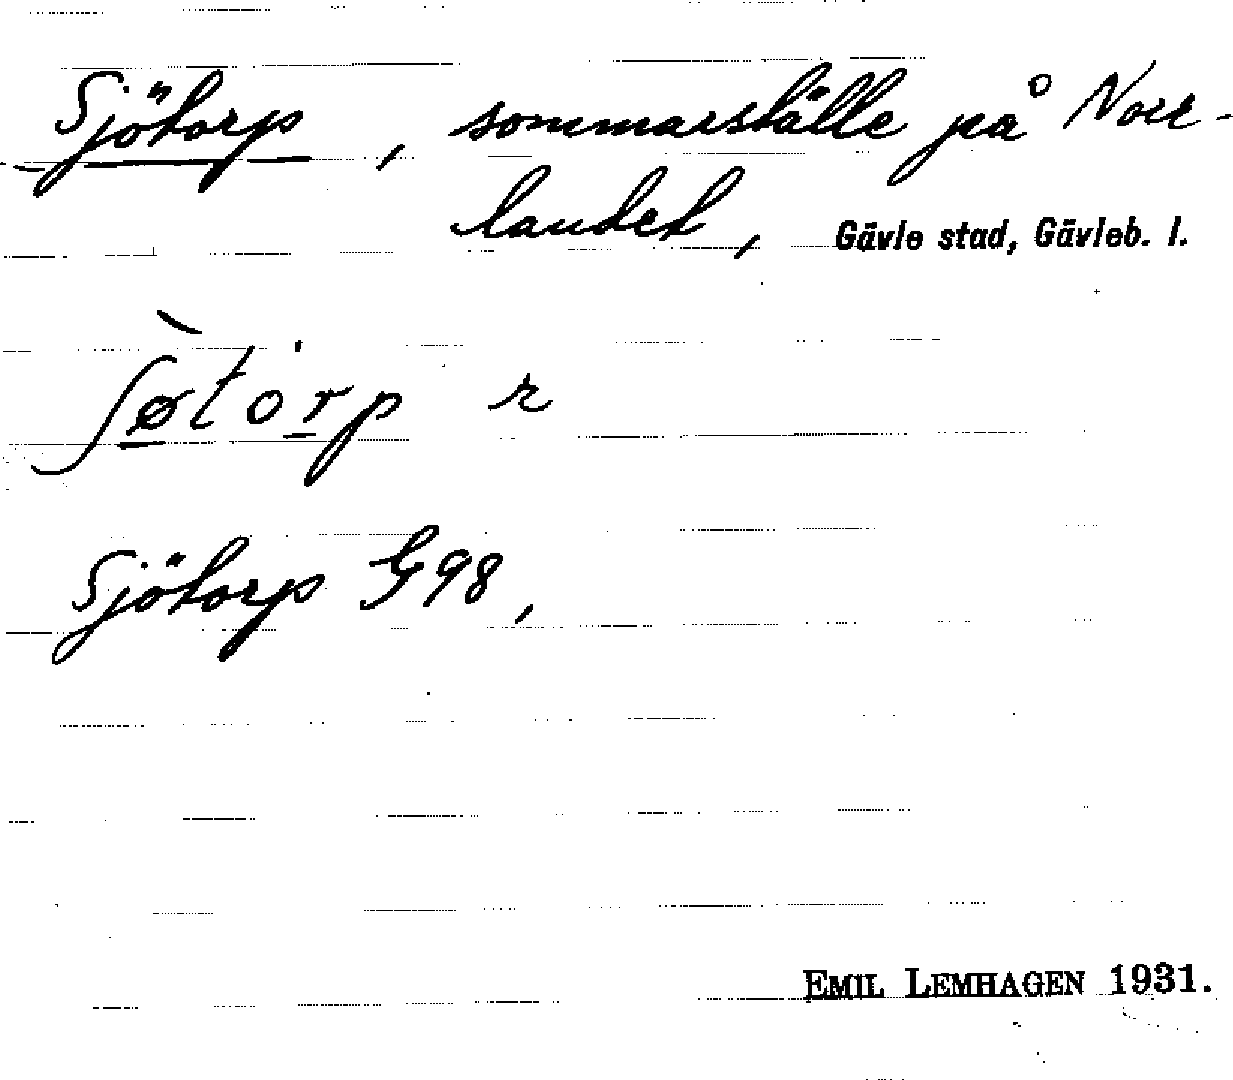 Sjötorp, sommarställe på Norr-
landet, Gävle stad, Gävleb. l.
ʃø̀tȯrp r
Sjötorp G98,
EMIL LEMHAGEN 1931.